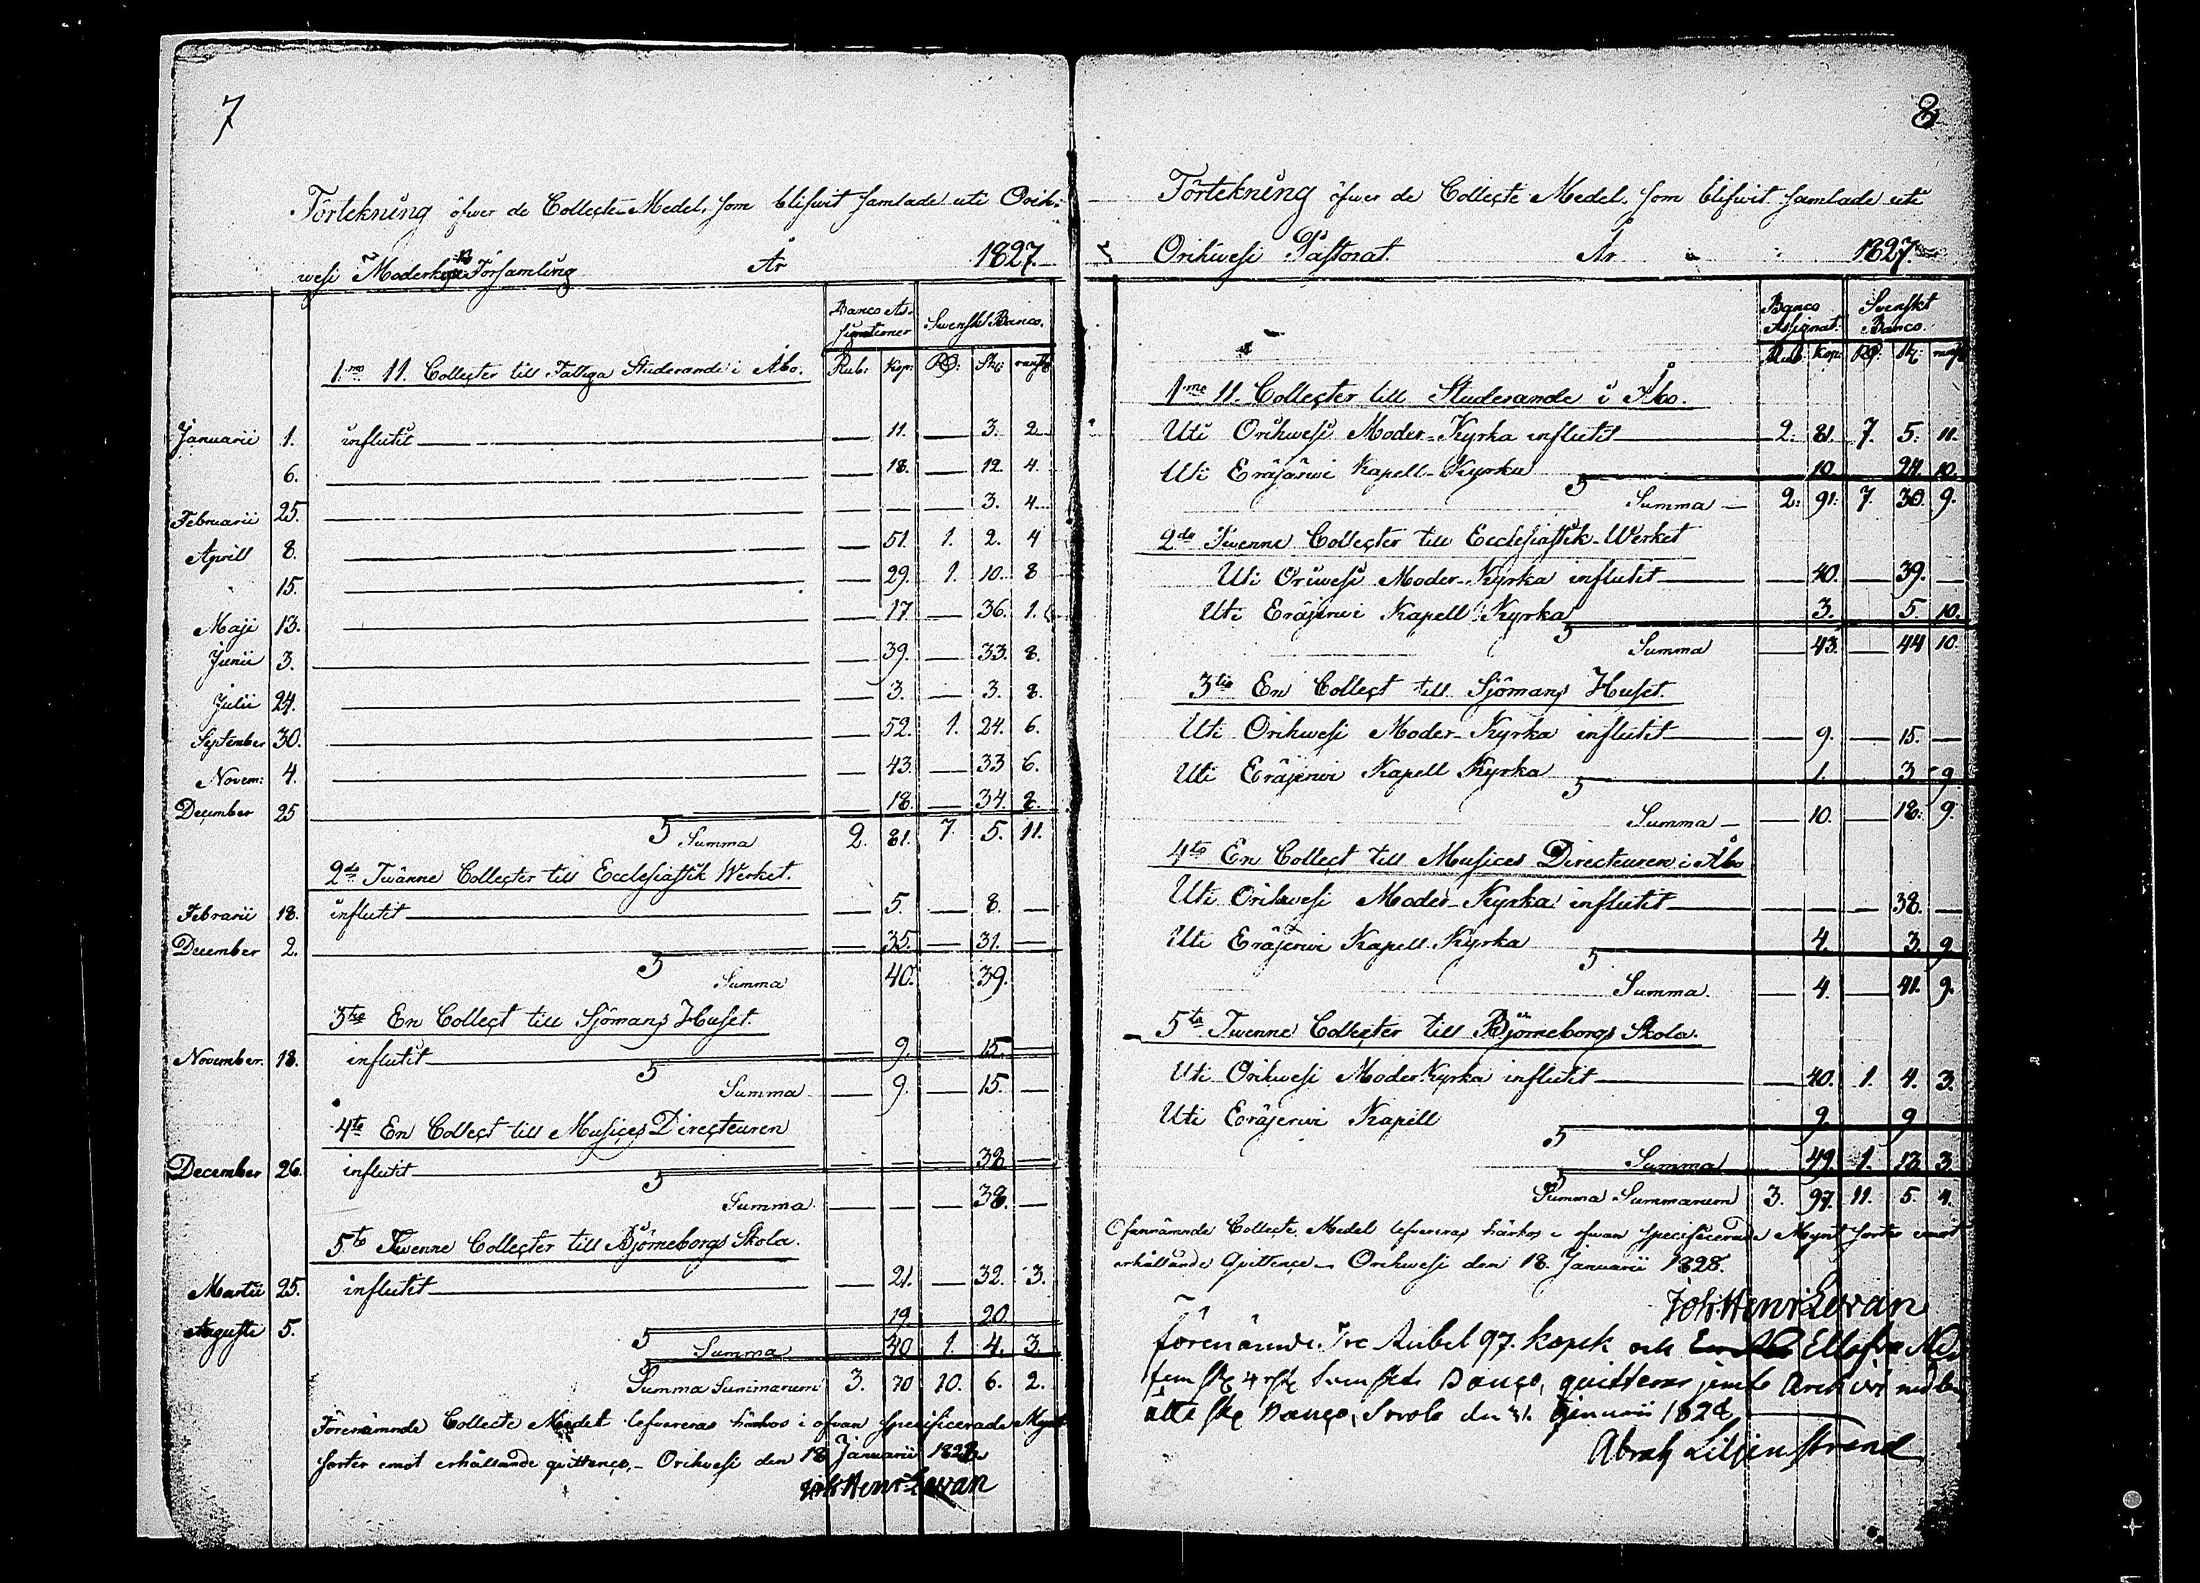 7
Förtekning öfwer de Collecte Medel, som blifwit samlade uti Orih-
wesi Moderkyrko Församling År 1827.
Banco As- Swenskt Banco.
signationer
1:mo 11. Collecter till Fattiga Studerande i Åbo. Rub: Kop: RD: Sk:
Januarii 1. influtit — 11. — 3. 2
6. — 18. — 12. 4.
Februarii 25. — — — 3. 4.
Aprill 8. — 51. 1. 2. 4
15. — 29. 1. 10. 8
Maji 13. — 17. — 36. 1.
Junii 3. — 39. — 33. 8.
Julii 24. — 3. — 3. 8.
September 30. — 52. 1. 24. 6.
Novem: 4. — 43. — 33 6.
December 25 — 18. — 34. 2.
Summa 2. 81. 7. 5. 11.
2do Twänne Collecter till Ecclesiastik Werket.
Febrarii 18. influtit — 5. — 8. —
December 2. — 35. — 31. —
Summa 40. 39.
3tio En Collect till Sjömans Huset.
November. 18. influtit — 9. — 15. —
Summa — 9. — 15. —
4to En Collect till Musices Directeuren
December 26. influtit — — — 38 —
Summa — — — 38. —
5to Twenne Collecter till Björneborgs Skola.
Martii 25. influtit — 21. — 32. 3.
Augusti 5. 19. 20
Summa 40 1. 4. 3.
Summa Summarum 3. 70 10. 6. 2.
Förenämnde Collecte Medel lefvereras härhos i ofvan specificerade Mynt
sorter emot erhållande quittence, – Orihvesi den 18 Januarii 1828.
Joh Henr Levan
8
Förtekning öfwer de Collecte Medel, som blifwit samlade uti
Orihwesi Pastorat. År 1827.
Banco Svenskt
Assignat: Banco.
Rub Kop: RD: Sk:
1mo 11. Collecter till Studerande i Åbo.
Uti Orihwesi Moder-Kyrka influtit — 2. 81. 7. 5. 11.
Uti Eräjärwi Kapell-Kyrka 10. 24. 10.
Summa — 2. 91. 7. 30. 9.
2do Twenne Collecter till Ecclesiastik-Werket
Uti Oriwesi Moder-Kyrka influtit — 40. — 39. —
Uti Eräjerwi Kapell Kyrka 3. 5. 10.
Summa — 43. — 44 10.
3tio En Collect till Sjömans Huset.
Uti Orihwesi Moder-Kyrka influtit — 9. — 15. —
Uti Eräjerwi Kapell Kyrka 1. 3 9
Summa — 10. — 18. 9.
4to En Collect till Musices Directeuren i Åbo
Uti Orihvesi Moder-Kyrka influtit — — — 38. —
Uti Eräjerwi Kapell Kyrka 4. 3. 9
Summa. — 4. — 41. 9.
5to Twenne Collecter till Björneborgs Skola.
Uti Orihwesi Moder Kyrka influtit — 40. 1. 4. 3.
Uti Eräjerwi Kapell 9. 9
Summa 49. 1. 13. 3.
Summa Summarum 3. 97. 11. 5. 4.
Ofannämnde Collecte Medel lefvereras härhos i ofvan specificerade Mynt sorter emot
erhållande Quittence – Orihwesi den 18. Januarii 1828.
Joh Henr Levan
förenämnde Tre Rubel 97. kopek och Ellofva
fem sk 4 rst Svenskt Banco, quitteras jemte
åtta sk Banco, den 31. Januarii 1828
Abrah Liljenstrand